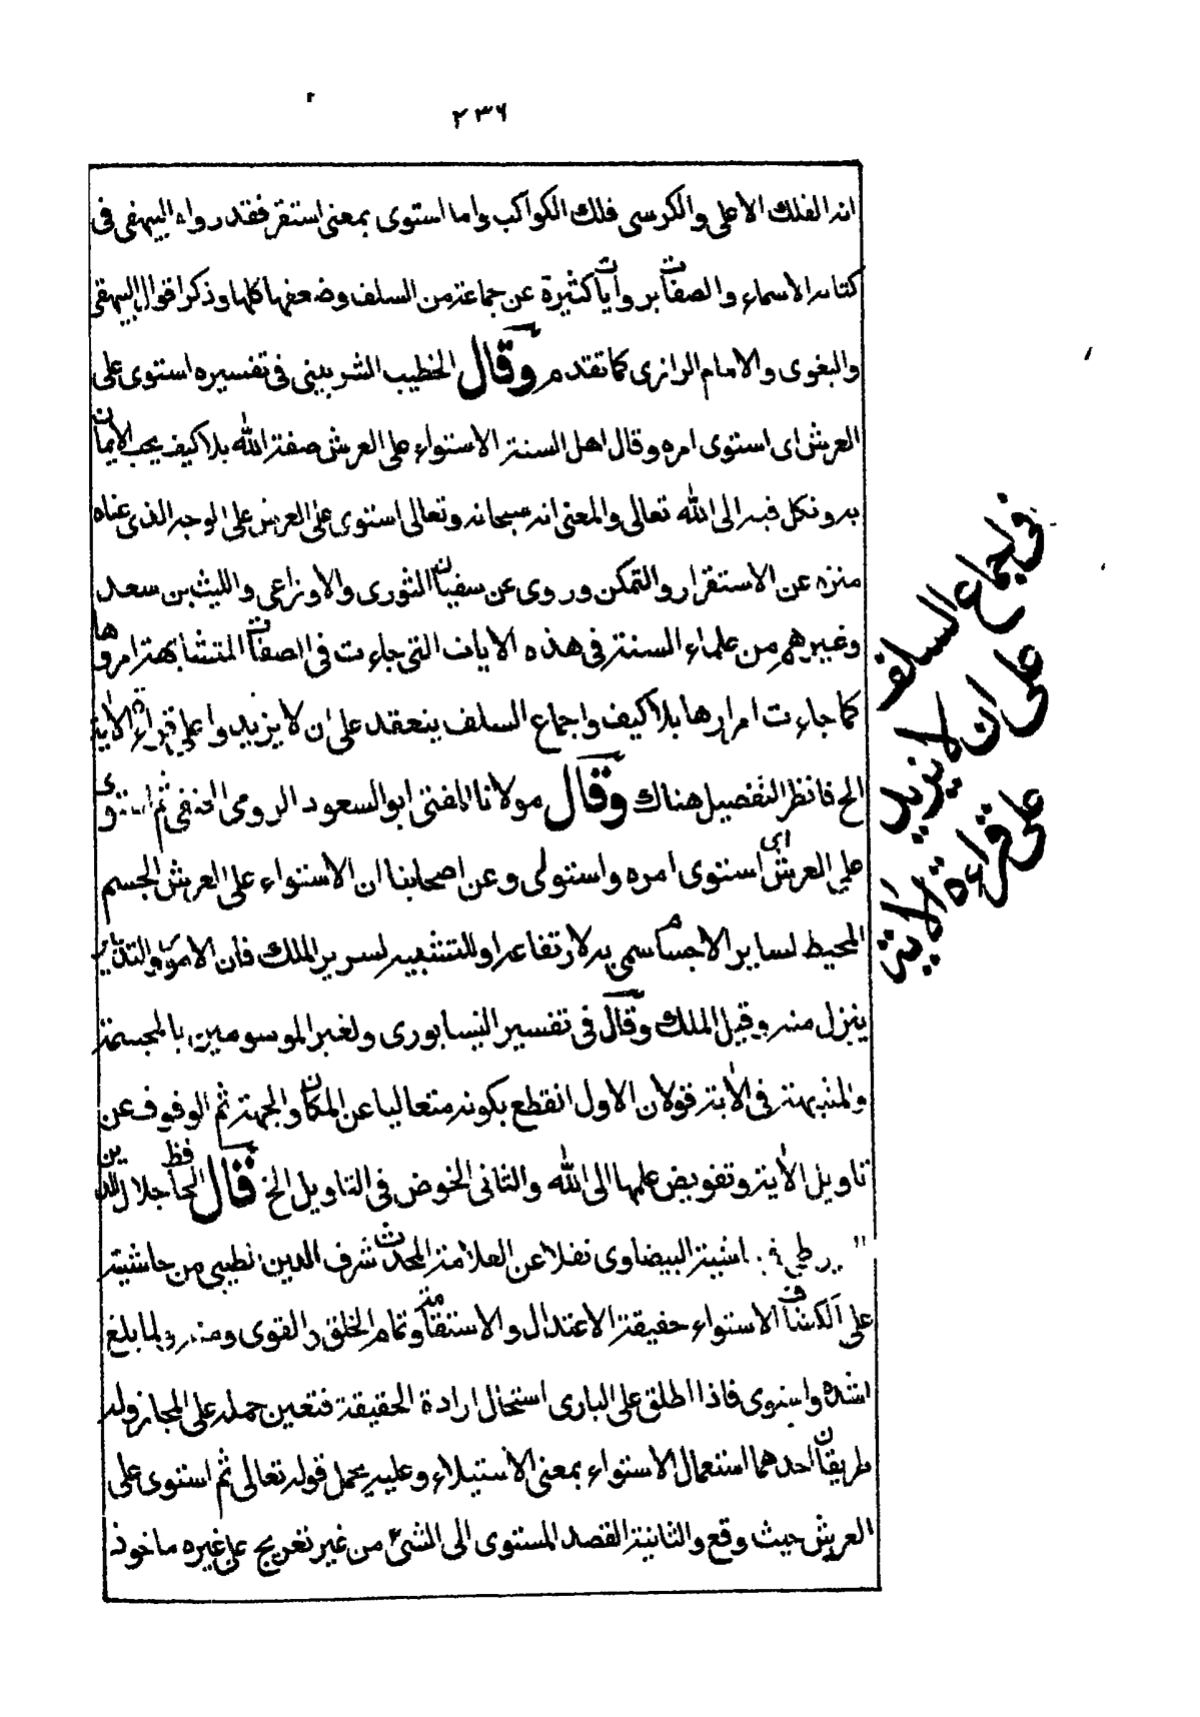 ٢٣٦
انه الفلك الاعلى والكرسى فلك الكواكب واما استوى بمعنى استقر فقد رواه البيهقى فى
كتابه الاسماء والصفات بروايات كثيرة عن جماعة من السلف وضعفها كلها وذكر اقوال البيهقى
والبغوى والامام الرازى كما تقدم وقال الخطيب الشربينى فى تفسيره استوى على
العرش اى استوى امره وقال اهل السنة الاستواء على العرش صفة الله بلا كيف يجب الايمان
به ونكل فيه الى الله تعالى والمعنى انه سبحانه وتعالى استوى على العرش على الوجه الذى عناه
منزه عن الاستقرار والتمكن وروى عن سفيان الثورى والاوزاعى والليث بن سعد
وغيرهم من علماء السنة فى هذه الايات التى جاءت فى الصفات المتشابهة امروها
كما جاءت امرارها بلا كيف واجماع السلف ينعقد على ان لا يزيدوا على قراءة الاية
الخ فانظر التفصيل هناك وقال مولانا المفتى ابو السعود الرومى الحنفى ثم استوى
على العرش اى استوى امره واستولى وعن اصحابنا ان الاستواء على العرش الجسم
المحيط لساير الاجسام سمى به لارتفاعه او للتشبيه لسرير الملك فان الامور والتدابير
ينزل منه وقيل الملك وقال فى تفسير النيسابورى ولغير الموسومين بالمجسمة
والمشبهة فى الاية قولان الاول القطع بكونه متعاليا عن المكان والجهة ثم الوقوف عن
تاويل الاية وتفويض علمها الى الله والثانى الخوض فى التاويل الخ قال الحافظ جلال الدين
فى اشية البيضاوى نقلا عن العلامة المحدث شرف الدين الطيبى من حاشيته
على الكشاف الاستواء حقيقة الاعتدال والاستقامة وتمام الخلق والقوى ومنه ولما بلغ
اشده واستوى فاذا اطلق على البارى استحال ارادة الحقيقة فتعين حمله على المجاز وله
طريقان احدهما استعمال الاستواء بمعنى الاستيلاء وعليه يحمل قوله تعالى ثم استوى على
العرش حيث وقع والثانية القصد المستوى الى الشئ من غير تعريج على غيره ماخوذ
واجماع السلف
على ان لا يزيد
على قراءة الاية